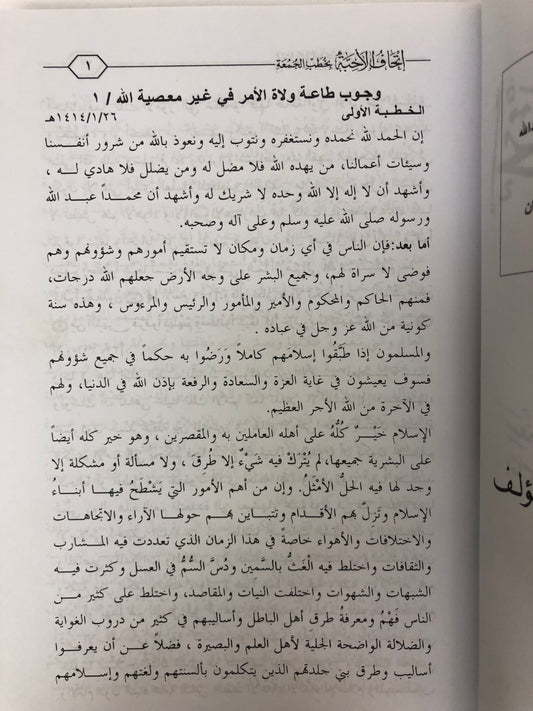 إتحاف الأحبة بخطب الجمعة
١
وجوب طاعة ولاة الأمر في غير معصية الله / ١
الخطبة الأولى
١٤١٤/١/٢٦هـ
إن الحمد لله نحمده ونستغفره ونتوب إليه ونعوذ بالله من شرور أنفسنا
وسيئات أعمالنا، من يهده الله فلا مضل له ومن يضلل فلا هادي له ،
وأشهد أن لا إله إلا الله وحده لا شريك له وأشهد أن محمداً عبد الله
ورسوله صلى الله عليه وسلم وعلى آله وصحبه.
أما بعد:فإن الناس في أي زمان ومكان لا تستقيم أمورهم وشؤونهم وهم
فوضى لا سراة لهم، وجميع البشر على وجه الأرض جعلهم الله درجات،
فمنهم الحاكم والمحكوم والأمير والمأمور والرئيس والمرءوس ، وهذه سنة
كونية من الله عز وجل في عباده .
والمسلمون إذا طَبَّقُوا إسلامَهم كاملاً وَرَضُوا به حكماً في جميع شؤونهم
فسوف يعيشون في غاية العزة والسعادة والرفعة بإذن الله في الدنيا، ولهم
في الآخرة من الله الأجر العظيم.
الإسلام خَيْرٌ كُلُّهُ على أهله العاملين به والمقصرين ، وهو خير كله أيضاً
على البشرية جميعها،لم يُتْرَكْ فيه شَيْءٌ إلا طُرِقَ ، ولا مسألة أو مشكلة إلا
وجد لها فيه الحلُّ الأَمْثَلُ. وإن من أهم الأمور التي يَشْطَحُ فيها أبناءُ
الإسلام وتَزِلُّ بهم الأقدام وتتباين بهم حولها الآراء والاتجاهات
والاختلافات والأهواء خاصةً في هذا الزمان الذي تعددت فيه المشارب
والثقافات واختلط فيه الْغَثُّ بالسَّمِينِ ودُسَّ السُّمُّ في العسل وكثرت فيه
الشبهات والشهوات واختلفت النيات والمقاصد، واختلط على كثير من
الناس فَهْمُ ومعرفةُ طرق أهل الباطل وأساليبهم في كثير من دروب الغواية
والضلالة الواضحة الجلية لأهل العلم والبصيرة ، فضلاً عن أن يعرفوا
أساليب وطرق بني جلدتهم الذين يتكلمون بألسنتهم ولغتهم وإسلامهم